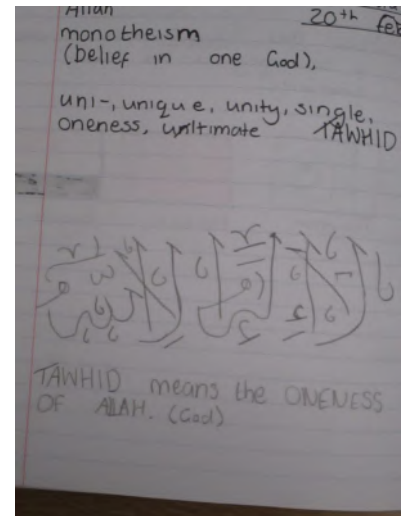 Allah
20th feb
monotheism
(belief in one God),
uni-, unique, unity, single,
oneness, unltimate TAWHID
TAWHID means the ONENESS
OF ALLAH. (God)